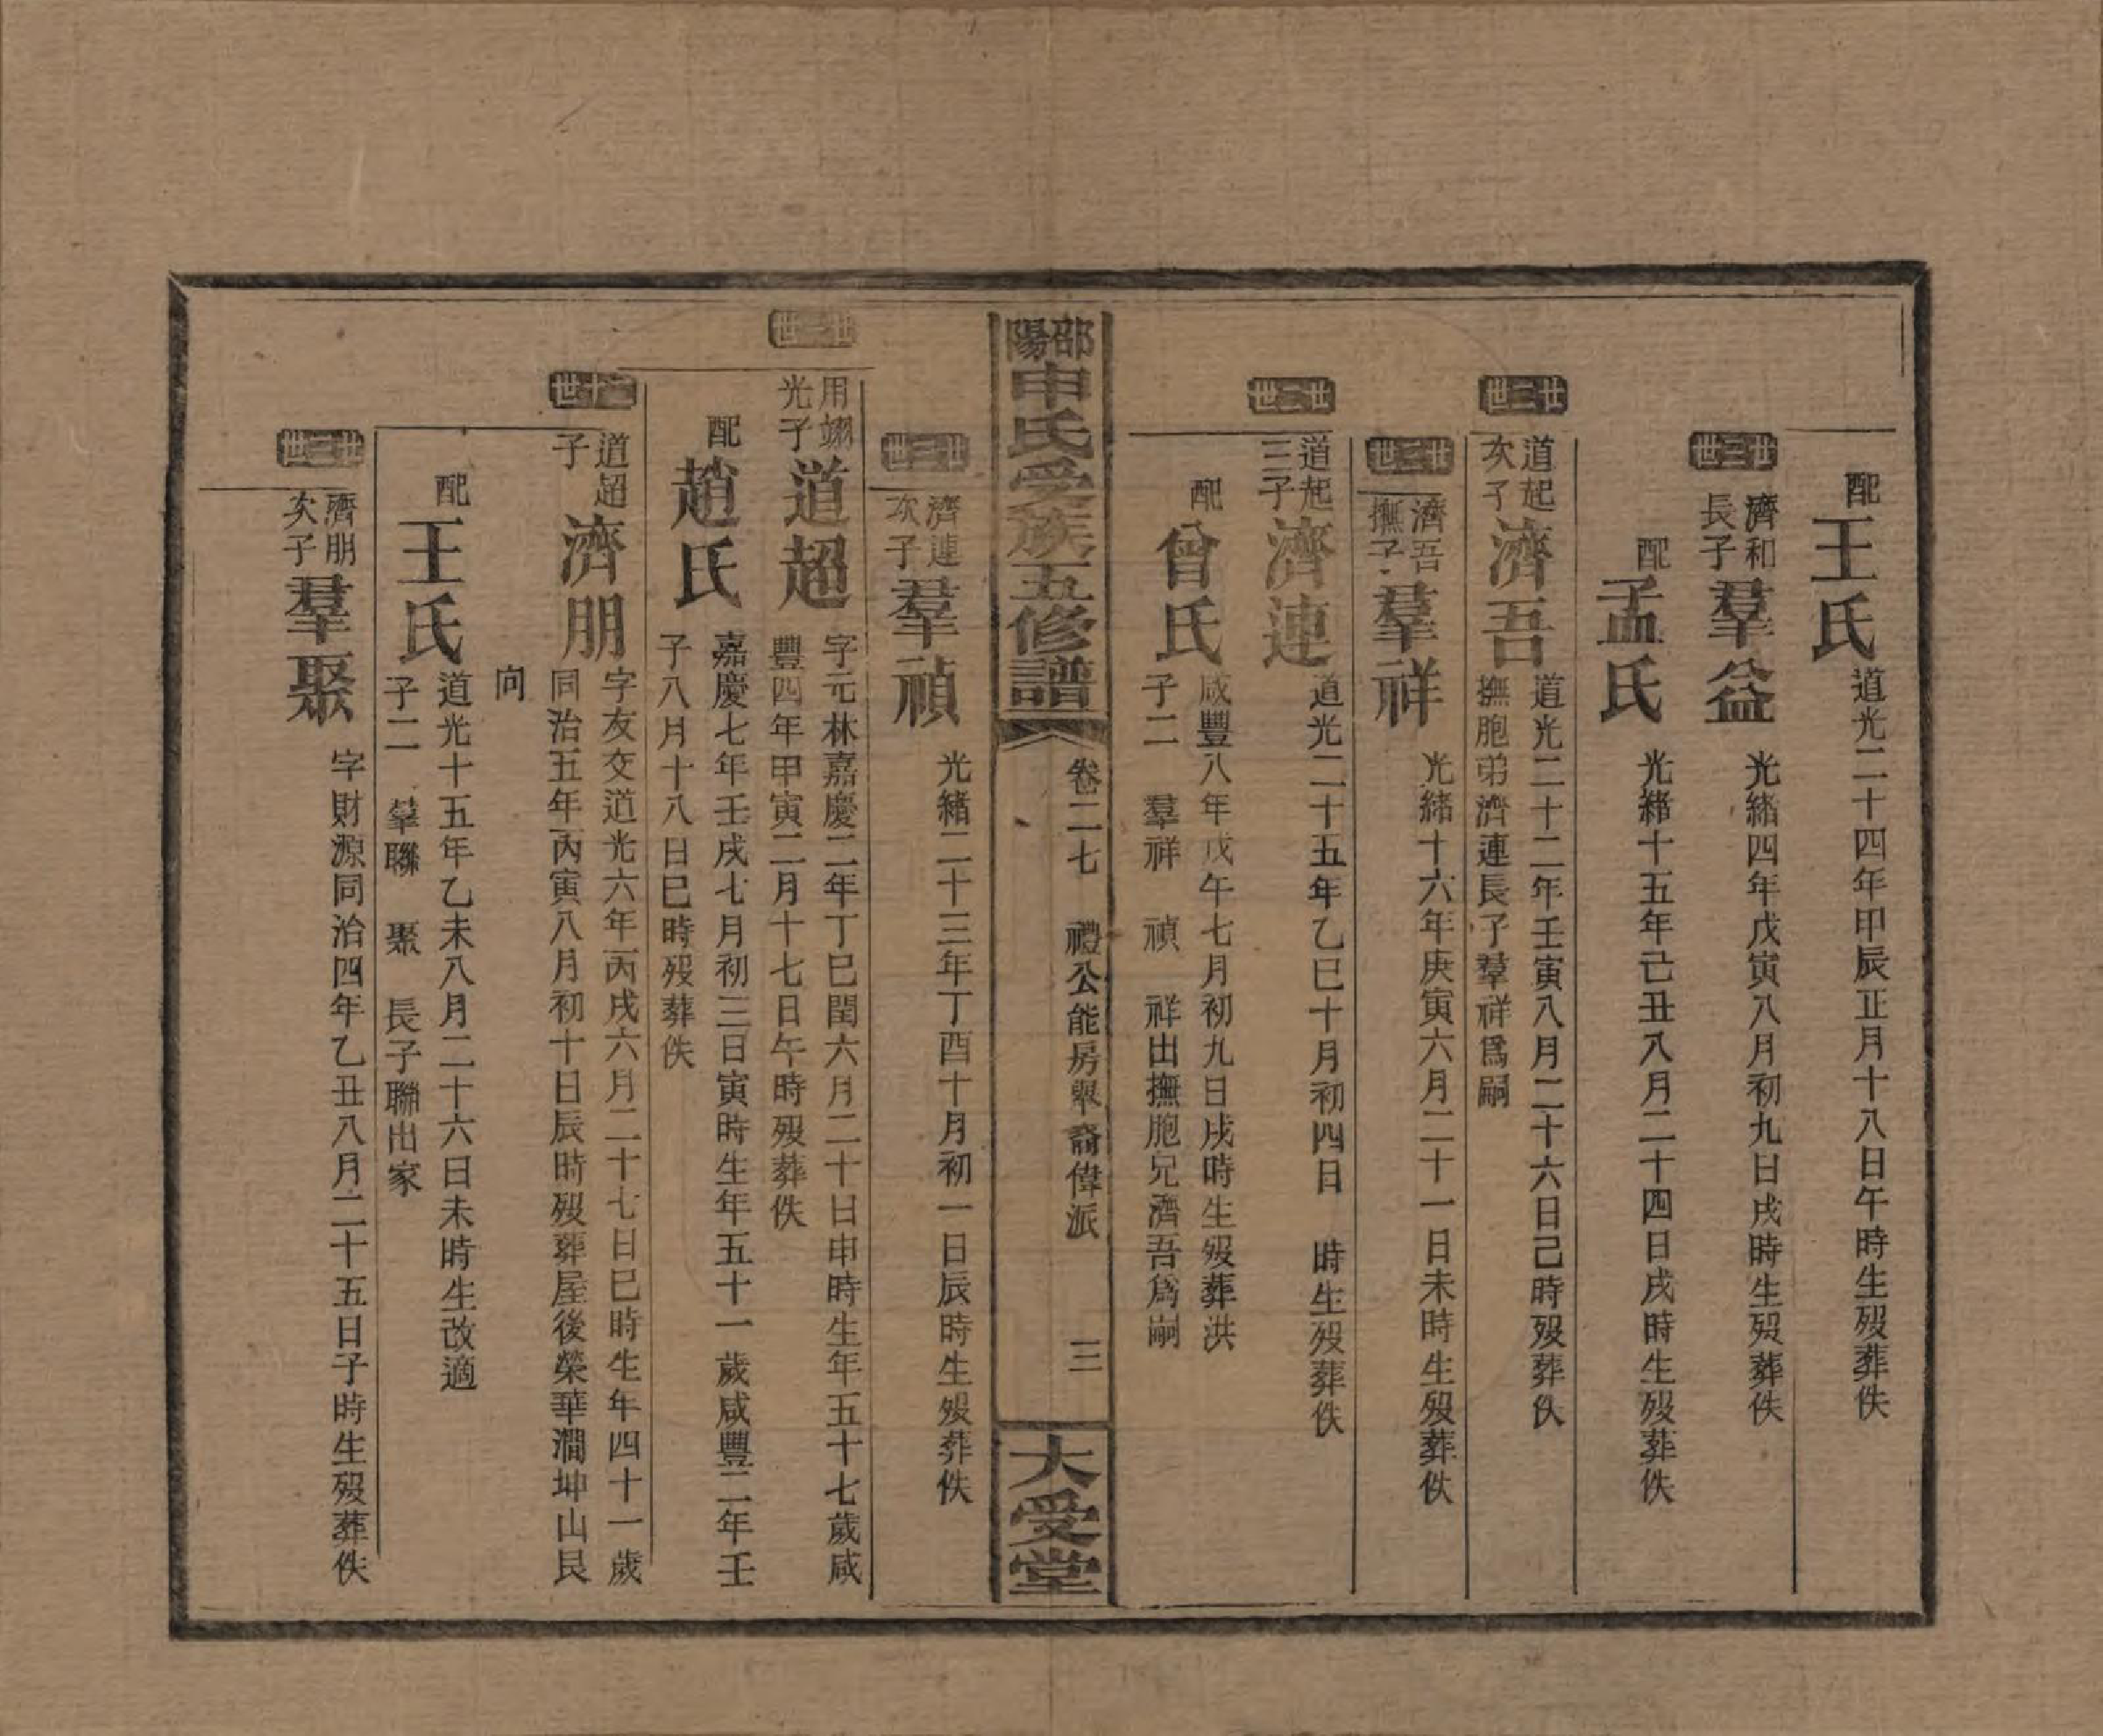 配
王氏
道光二十四年甲辰正月十八日午時生歿葬佚
濟和
長子
羣益
光緒四年戊寅八月初九日戌時生歿葬佚
配
孟氏
光緒十五年己丑八月二十四日戌時生歿葬佚
道起
次子
濟吾
道光二十二年壬寅八月二十六日己時歿葬佚
撫胞弟濟連長子羣祥爲嗣
濟吾
撫子
羣祥
光緒十六年庚寅六月二十一日未時生歿葬佚
道起
三子
濟連
道光二十五年乙巳十月初四日 時生歿葬佚
配
曾氏
咸豐八年戊午七月初九日戌時生歿葬洪
子二 羣祥 禎 祥出撫胞兄濟吾爲嗣
邵陽申氏受族五修譜
卷二七 禮公能房 裔偉派 三
大受堂
濟連
次子
羣禎
光緒二十三年丁酉十月初一日辰時生歿葬佚
用翊
光子
道超
字元林嘉慶二年丁巳閏六月二十日申時生年五十七歲咸
豐四年甲寅二月十七日午時歿葬佚
配
趙氏
嘉慶七年壬戌七月初三日寅時生年五十一歲咸豐二年壬
子八月十八日巳時歿葬佚
道超
子
濟朋
字友交道光六年丙戌六月二十七日巳時生年四十一歲
同治五年丙寅八月初十日辰時歿葬屋後榮華澗坤山艮
向
配
王氏
道光十五年乙未八月二十六日未時生改適
子二 羣聯 聚 長子聯出家
濟朋
次子
羣聚
字財源同治四年乙丑八月二十五日子時生歿葬佚